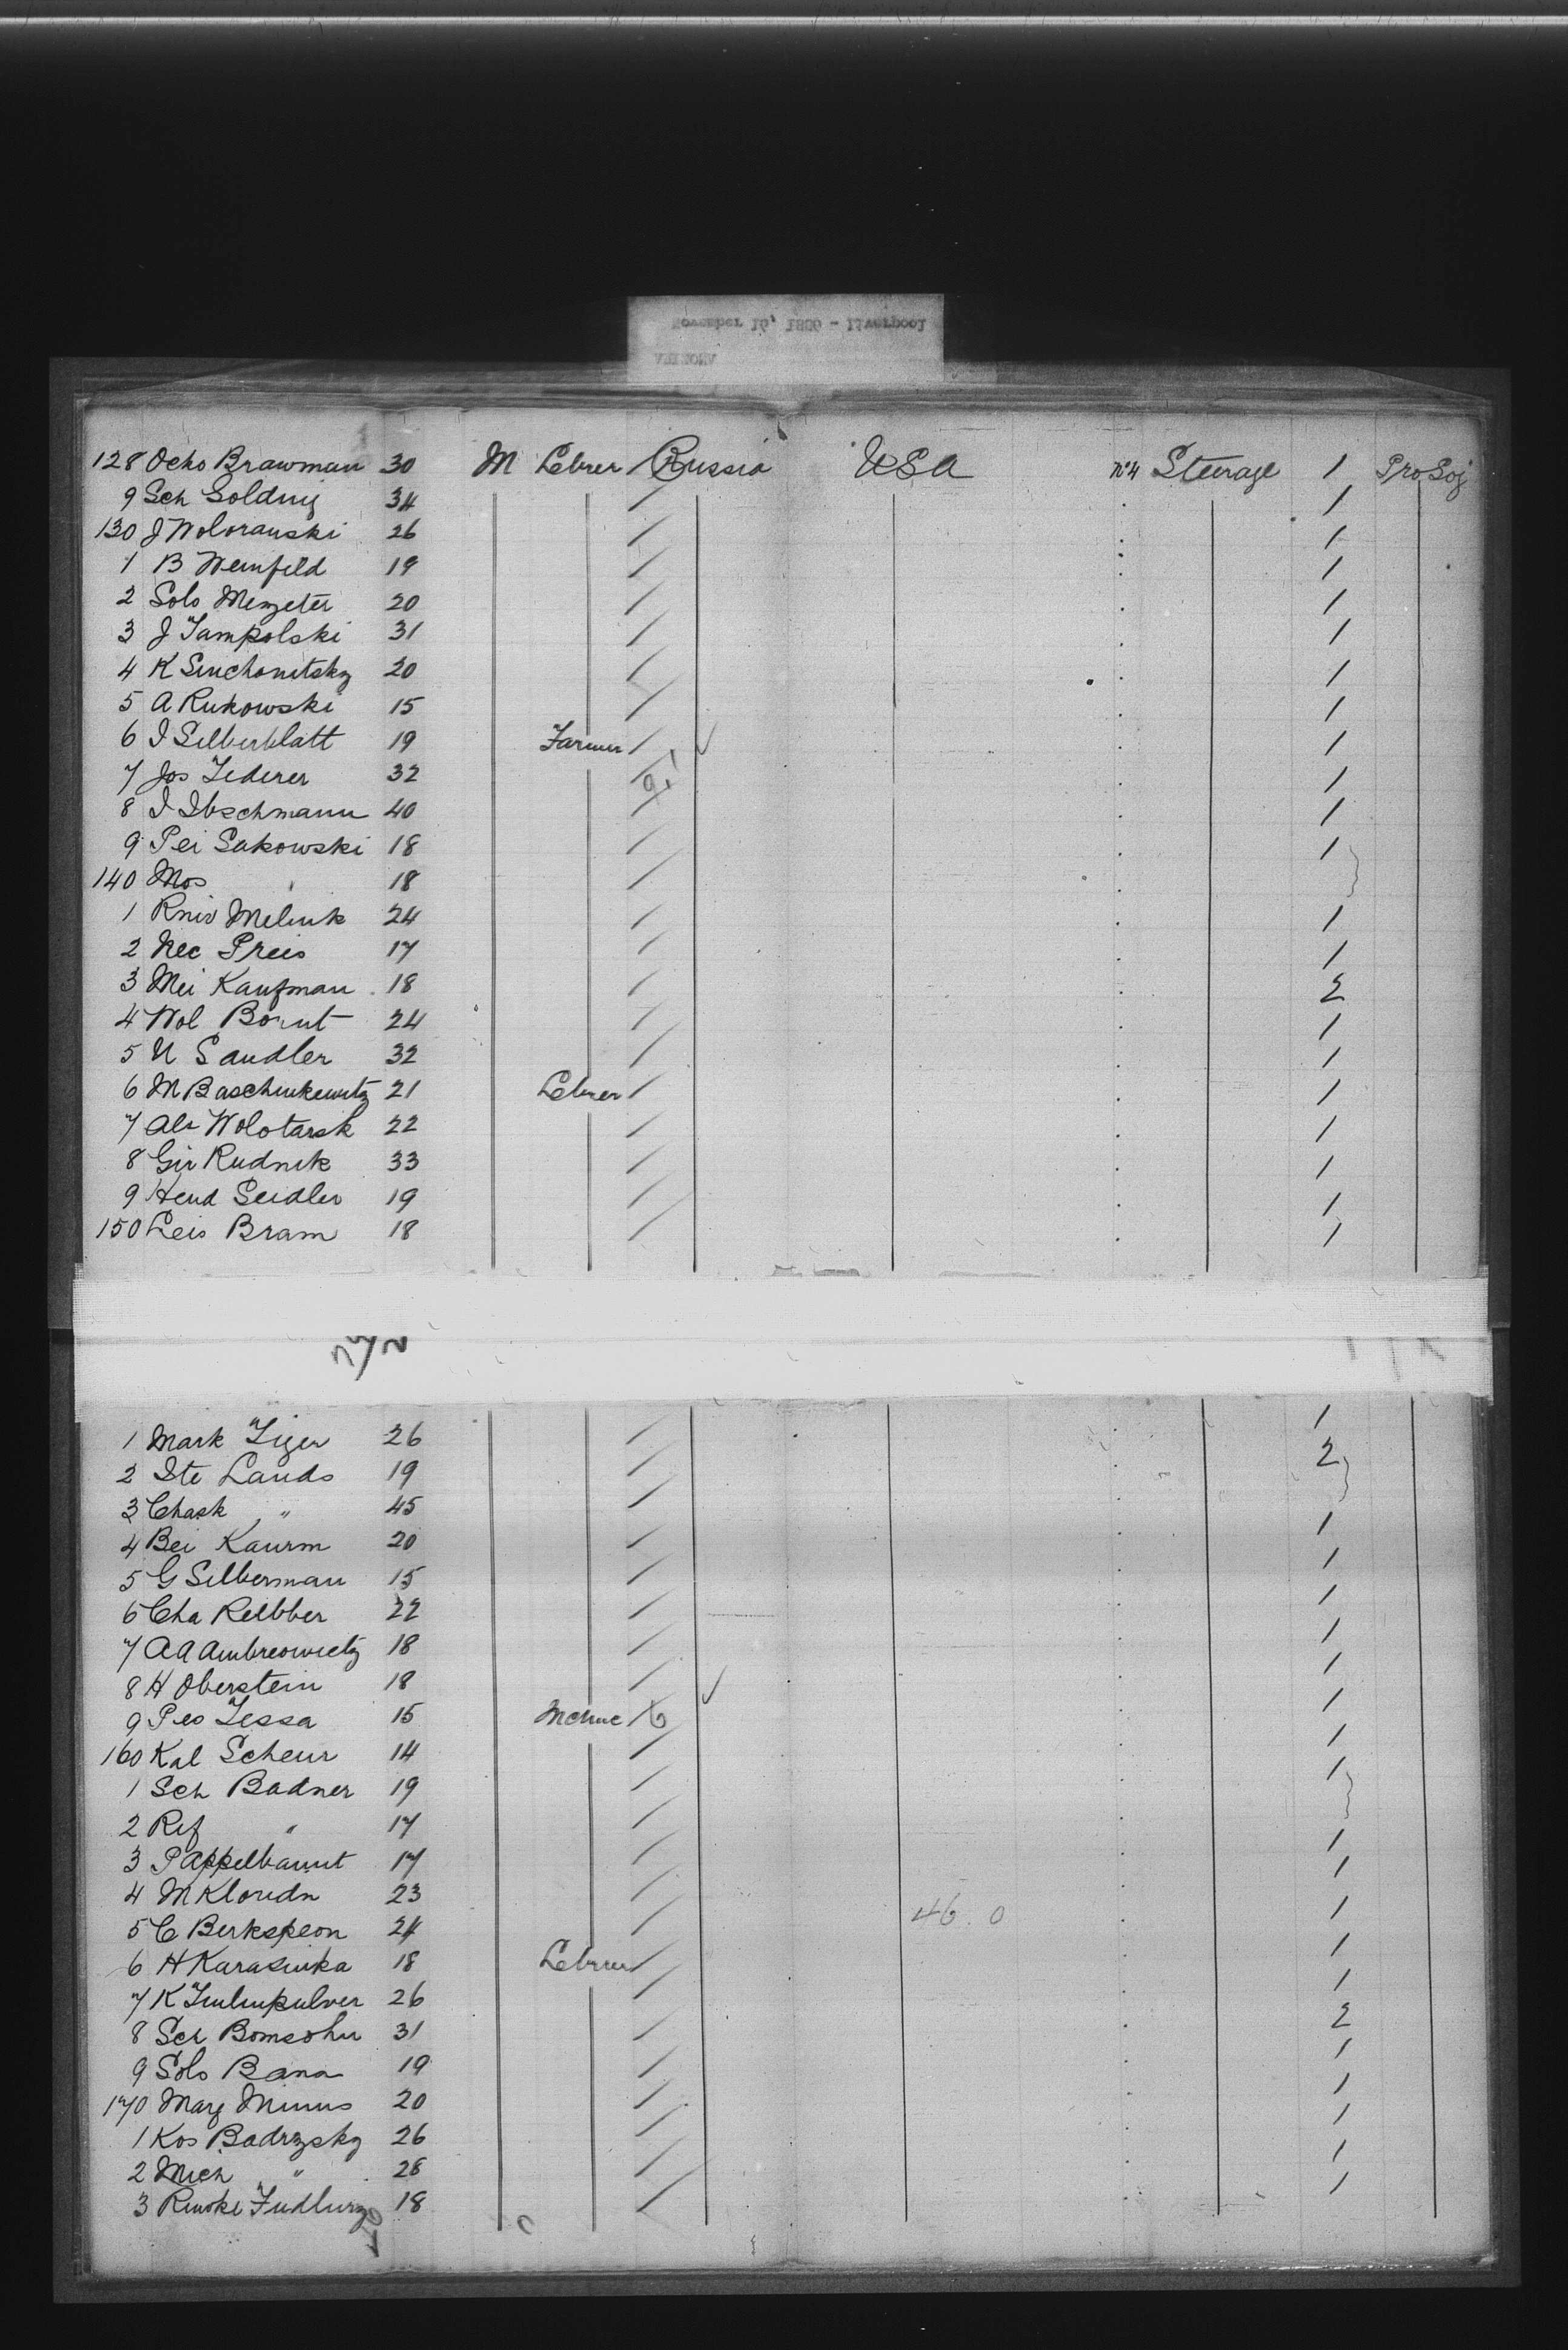 128 Ocho Brawman 30 M Lebrer Russia USA No4 Steerage 1 Pro Soj
9 Sch Golding 34 1
130 J Woloranski 26 1
1 B Weinfeld 19 1
2 Solo Menzeter 20 1
3 J Jampolski 31 1
4 K Sinchonitsky 20 1
5 A Rukowski 15 1
6 I Silberblatt 19 Farmer 1
7 Jos Lederer 32 1
8 I Ibschmann 40 1
9 Pei Sakowski 18 1
140 Mos " 18
1 Melnik 24 1
2 Nec Preis 17 1
3 Mei Kaufman 18 2
4 Wol Bornt 24 1
5 N Sandler 32 1
6 M Baschinkewitz 21 Lebrer 1
7 Alr Wolotarsk 22 1
8 Gir Rudnik 33 1
9 Hend Seidler 19 1
150 Leis Bram 18 1
1 Mark Ziger 26 1
2 Ite Lands 19 2
3 Chask " 45
4 Bei Kaurm 20 1
5 G Silberman 15 1
6 Cha Reibber 22 1
7 A A Ambreowietz 18 1
8 H Oberstein 18 1
9 Pes Lessa 15 Mchnc 1
160 Kal Scheur 14 1
1 Sch Badner 19 1
2 Rif " 17
3 P Appelbaumt 17 1
4 M Kloridn 23 1
5 C Berkspeon 24 46.0 1
6 H Karasinka 18 Lebrer 1
7 K 26 1
8 Sch Bomsohn 31 2
9 Solo Bana 19 1
170 Marg Minus 20 1
1 Kos Badrzsky 26 1
2 Mich " 28 1
3 18 1